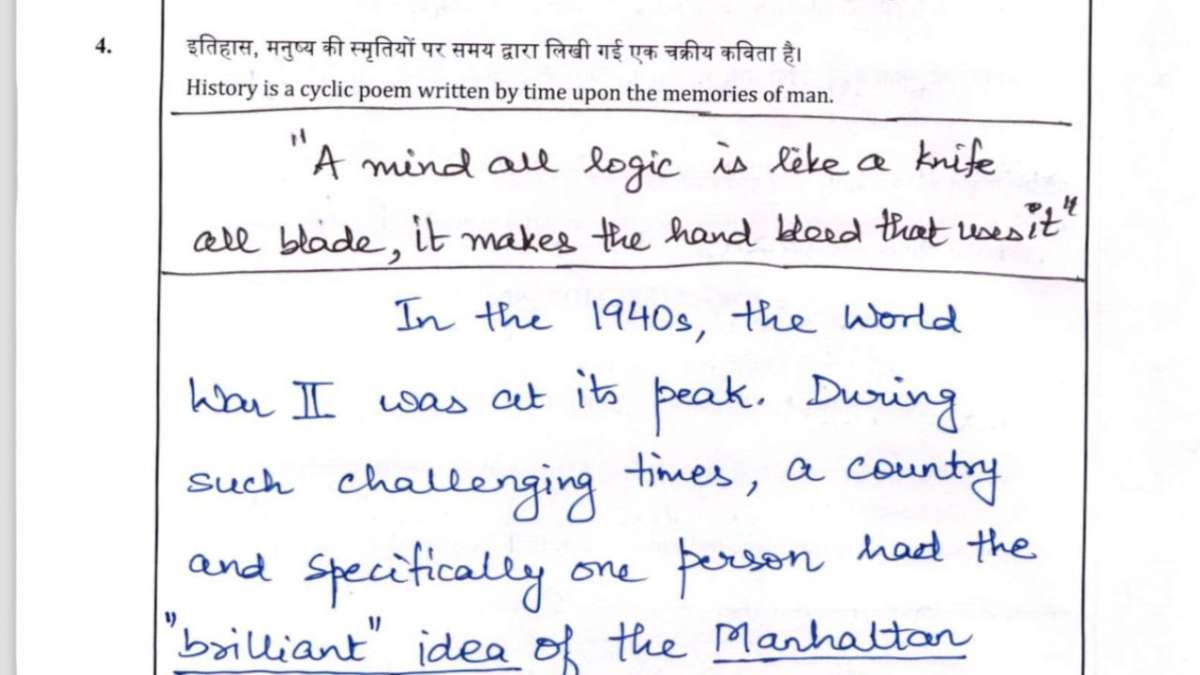 4.
इतिहास, मनुष्य की स्मृतियों पर समय द्वारा लिखी गई एक चक्रीय कविता है।
History is a cyclic poem written by time upon the memories of man.
"A mind all logic is like a knife
all blade, it makes the hand bleed that uses it"
In the 1940s, the World
War II was at its peak. During
such challenging times, a country
and specifically one person had the
"brilliant" idea of the Manhattan